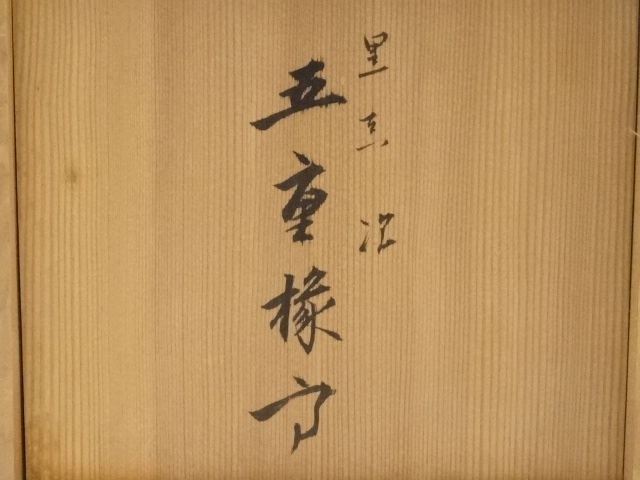 黒真塗
五重椽高